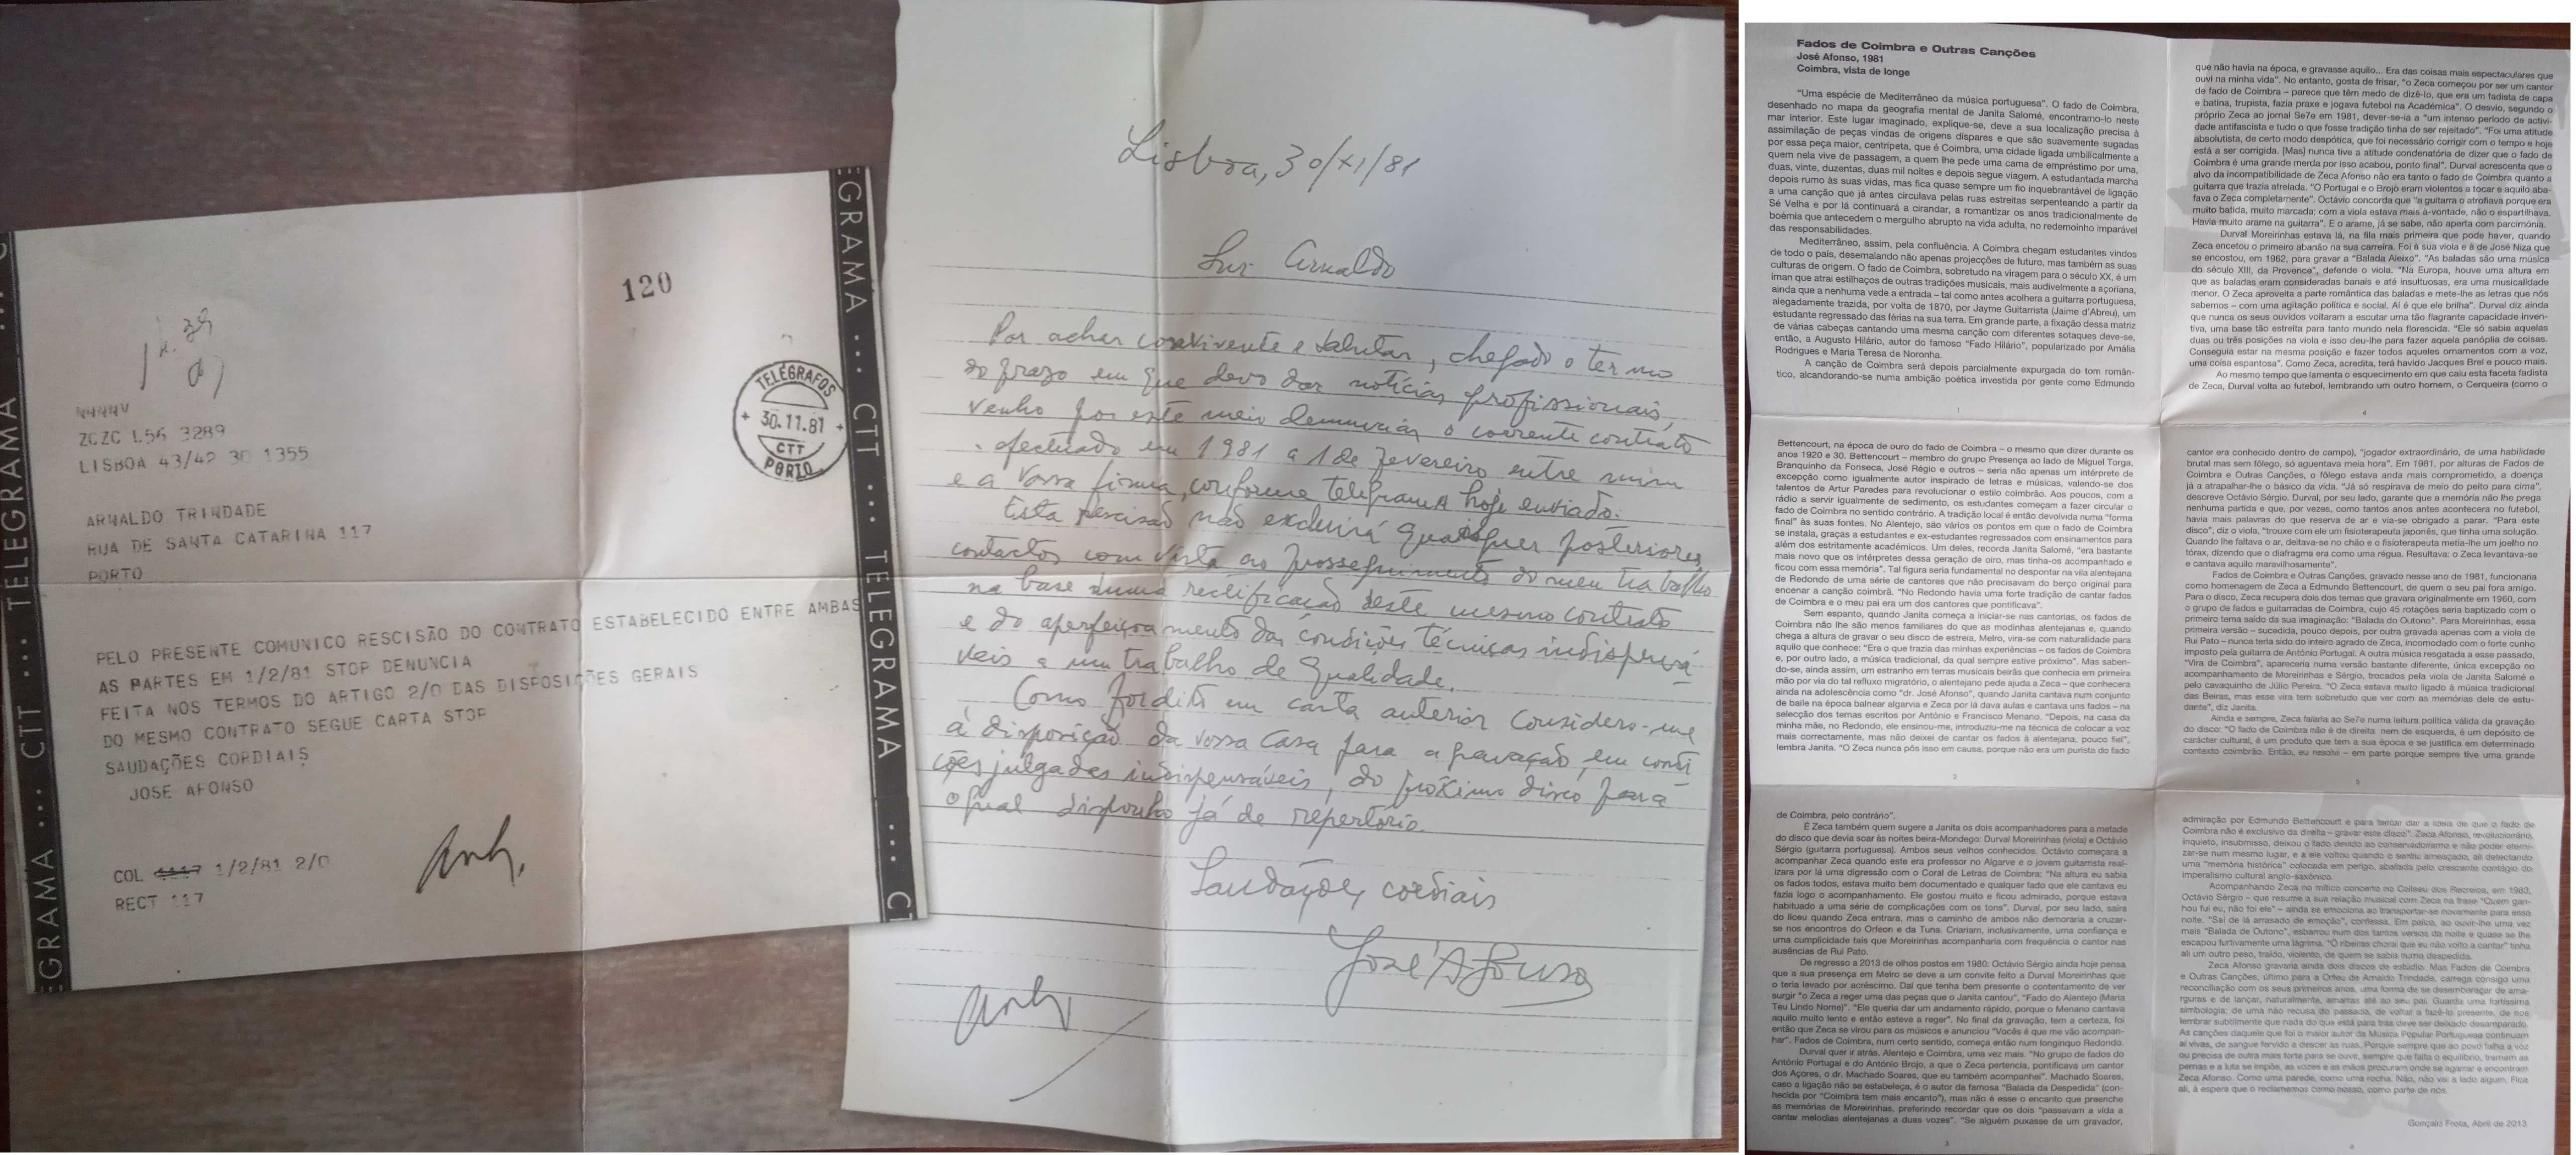 TELEGRAMA ... CTT ... TELEGRAMA
120
TELÉGRAFOS
30.11.81
CTT
PORTO
ZCZC L56 3289
LISBOA 43/42 30 1355
ARNALDO TRINDADE
RUA DE SANTA CATARINA 117
PORTO
PELO PRESENTE COMUNICO RESCISÃO DO CONTRATO ESTABELECIDO ENTRE AMBAS
AS PARTES EM 1/2/81 STOP DENUNCIA
FEITA NOS TERMOS DO ARTIGO 2/O DAS DISPOSIÇÕES GERAIS
DO MESMO CONTRATO SEGUE CARTA STOP
SAUDAÇÕES CORDIAIS
JOSE AFONSO
COL 1/2/81 2/O
RECT 117
EGRAMA ... CTT ... TELEGRAMA ... CT
Lisboa, 30/XI/81
Snr Arnaldo
Por achar conviniente e salutar, chegado o termo
do prazo em que devo dar notícias profissionais,
venho por este meio denunciar o corrente contrato
efectuado em 1981 a 1 de Fevereiro entre mim
e a vossa firma, conforme telegrama hoje enviado.
Esta rescisão não excluirá quaisquer posteriores
contactos com vista ao prosseguimento do meu trabalho
na base numa rectificação deste mesmo contrato
e do aperfeiçoamento das condições técnicas indispensá
veis a um trabalho de qualidade.
Como foi dito em carta anterior considero-me
à disposição da vossa Casa para a gravação, em condi
ções julgadas indispensáveis, do próximo disco para
o qual disponho já de repertório.
Saudações cordiais
José Afonso
Fados de Coimbra e Outras Canções
José Afonso, 1981
Coimbra, vista de longe
"Uma espécie de Mediterrâneo da música portuguesa". O fado de Coimbra,
desenhado no mapa da geografia mental de Janita Salomé, encontramo-lo neste
mar interior. Este lugar imaginado, explique-se, deve a sua localização precisa à
assimilação de peças vindas de origens díspares e que são suavemente sugadas
por essa peça maior, centrípeta, que é Coimbra, uma cidade ligada umbilicalmente a
quem nela vive de passagem, a quem lhe pede uma cama de empréstimo por uma,
duas, vinte, duzentas, duas mil noites e depois segue viagem. A estudantada marcha
depois rumo às suas vidas, mas fica quase sempre um fio inquebrantável de ligação
a uma canção que já antes circulava pelas ruas estreitas serpenteando a partir da
Sé Velha e por lá continuará a cirandar, a romantizar os anos tradicionalmente de
boémia que antecedem o mergulho abrupto na vida adulta, no redemoinho imparável
das responsabilidades.
Mediterrâneo, assim, pela confluência. A Coimbra chegam estudantes vindos
de todo o país, desemalando não apenas projecções de futuro, mas também as suas
culturas de origem. O fado de Coimbra, sobretudo na viragem para o século XX, é um
íman que atrai estilhaços de outras tradições musicais, mais audivelmente a açoriana,
ainda que a nenhuma vede a entrada – tal como antes acolhera a guitarra portuguesa,
alegadamente trazida, por volta de 1870, por Jayme Guitarrista (Jaime d'Abreu), um
estudante regressado das férias na sua terra. Em grande parte, a fixação dessa matriz
de várias cabeças cantando uma mesma canção com diferentes sotaques deve-se,
então, a Augusto Hilário, autor do famoso "Fado Hilário", popularizado por Amália
Rodrigues e Maria Teresa de Noronha.
A canção de Coimbra será depois parcialmente expurgada do tom român-
tico, alcandorando-se numa ambição poética investida por gente como Edmundo
1
Bettencourt, na época de ouro do fado de Coimbra – o mesmo que dizer durante os
anos 1920 e 30. Bettencourt – membro do grupo Presença ao lado de Miguel Torga,
Branquinho da Fonseca, José Régio e outros – seria não apenas um intérprete de
excepção como igualmente autor inspirado de letras e músicas, valendo-se dos
talentos de Artur Paredes para revolucionar o estilo coimbrão. Aos poucos, com a
rádio a servir igualmente de sedimento, os estudantes começam a fazer circular o
fado de Coimbra no sentido contrário. A tradição local é então devolvida numa "forma
final" às suas fontes. No Alentejo, são vários os pontos em que o fado de Coimbra
se instala, graças a estudantes e ex-estudantes regressados com ensinamentos para
além dos estritamente académicos. Um deles, recorda Janita Salomé, "era bastante
mais novo que os intérpretes dessa geração de oiro, mas tinha-os acompanhado e
ficou com essa memória". Tal figura seria fundamental no despontar na vila alentejana
de Redondo de uma série de cantores que não precisavam do berço original para
encenar a canção coimbrã. "No Redondo havia uma forte tradição de cantar fados
de Coimbra e o meu pai era um dos cantores que pontificava".
Sem espanto, quando Janita começa a iniciar-se nas cantorias, os fados de
Coimbra não lhe são menos familiares do que as modinhas alentejanas e, quando
chega a altura de gravar o seu disco de estreia, Melro, vira-se com naturalidade para
aquilo que conhece: "Era o que trazia das minhas experiências – os fados de Coimbra
e, por outro lado, a música tradicional, da qual sempre estive próximo". Mas saben-
do-se, ainda assim, um estranho em terras musicais beirãs que conhecia em primeira
mão por via do tal refluxo migratório, o alentejano pede ajuda a Zeca – que conhecera
ainda na adolescência como "dr. José Afonso", quando Janita cantava num conjunto
de baile na época balnear algarvia e Zeca por lá dava aulas e cantava uns fados – na
selecção dos temas escritos por António e Francisco Menano. "Depois, na casa da
minha mãe, no Redondo, ele ensinou-me, introduziu-me na técnica de colocar a voz
mais correctamente, mas não deixei de cantar os fados à alentejana, pouco fiel",
lembra Janita. "O Zeca nunca pôs isso em causa, porque não era um purista do fado
2
de Coimbra, pelo contrário".
É Zeca também quem sugere a Janita os dois acompanhadores para a metade
do disco que devia soar às noites beira-Mondego: Durval Moreirinhas (viola) e Octávio
Sérgio (guitarra portuguesa). Ambos seus velhos conhecidos. Octávio começara a
acompanhar Zeca quando este era professor no Algarve e o jovem guitarrista real-
izara por lá uma digressão com o Coral de Letras de Coimbra: "Na altura eu sabia
os fados todos, estava muito bem documentado e qualquer fado que ele cantava eu
fazia logo o acompanhamento. Ele gostou muito e ficou admirado, porque estava
habituado a uma série de complicações com os tons". Durval, por seu lado, saíra
do liceu quando Zeca entrara, mas o caminho de ambos não demoraria a cruzar-
se nos encontros do Orfeon e da Tuna. Criariam, inclusivamente, uma confiança e
uma cumplicidade tais que Moreirinhas acompanharia com frequência o cantor nas
ausências de Rui Pato.
De regresso a 2013 de olhos postos em 1980: Octávio Sérgio ainda hoje pensa
que a sua presença em Melro se deve a um convite feito a Durval Moreirinhas que
o teria levado por acréscimo. Daí que tenha bem presente o contentamento de ver
surgir "o Zeca a reger uma das peças que o Janita cantou", "Fado do Alentejo (Maria
Teu Lindo Nome)". "Ele queria dar um andamento rápido, porque o Menano cantava
aquilo muito lento e então esteve a reger". No final da gravação, tem a certeza, foi
então que Zeca se virou para os músicos e anunciou "Vocês é que me vão acompan-
har". Fados de Coimbra, num certo sentido, começa então num longínquo Redondo.
Durval quer ir atrás. Alentejo e Coimbra, uma vez mais. "No grupo de fados do
António Portugal e do António Brojo, a que o Zeca pertencia, pontificava um cantor
dos Açores, o dr. Machado Soares, que eu também acompanhei". Machado Soares,
caso a ligação não se estabeleça, é o autor da famosa "Balada da Despedida" (con-
hecida por "Coimbra tem mais encanto"), mas não é esse o encanto que preenche
as memórias de Moreirinhas, preferindo recordar que os dois "passavam a vida a
cantar melodias alentejanas a duas vozes". "Se alguém puxasse de um gravador,
3
que não havia na época, e gravasse aquilo... Era das coisas mais espectaculares que
ouvi na minha vida". No entanto, gosta de frisar, "o Zeca começou por ser um cantor
de fado de Coimbra – parece que têm medo de dizê-lo, que era um fadista de capa
e batina, trupista, fazia praxe e jogava futebol na Académica". O desvio, segundo o
próprio Zeca ao jornal Se7e em 1981, dever-se-ia a "um intenso período de activi-
dade antifascista e tudo o que fosse tradição tinha de ser rejeitado". "Foi uma atitude
absolutista, de certo modo despótica, que foi necessário corrigir com o tempo e hoje
está a ser corrigida. [Mas] nunca tive a atitude condenatória de dizer que o fado de
Coimbra é uma grande merda por isso acabou, ponto final". Durval acrescenta que o
alvo da incompatibilidade de Zeca Afonso não era tanto o fado de Coimbra quanto a
guitarra que trazia atrelada. "O Portugal e o Brojo eram violentos a tocar e aquilo aba-
fava o Zeca completamente". Octávio concorda que "a guitarra o atrofiava porque era
muito batida, muito marcada; com a viola estava mais à-vontade, não o espartilhava.
Havia muito arame na guitarra". E o arame, já se sabe, não aperta com parcimónia.
Durval Moreirinhas estava lá, na fila mais primeira que pode haver, quando
Zeca encetou o primeiro abanão na sua carreira. Foi à sua viola e à de José Niza que
se encostou, em 1962, para gravar a "Balada Aleixo". "As baladas são uma música
do século XIII, da Provence", defende o viola. "Na Europa, houve uma altura em
que as baladas eram consideradas banais e até insultuosas, era uma musicalidade
menor. O Zeca aproveita a parte romântica das baladas e mete-lhe as letras que nós
sabemos – com uma agitação política e social. Aí é que ele brilha". Durval diz ainda
que nunca os seus ouvidos voltaram a escutar uma tão flagrante capacidade inven-
tiva, uma base tão estreita para tanto mundo nela florescida. "Ele só sabia aquelas
duas ou três posições na viola e isso deu-lhe para fazer aquela panóplia de coisas.
Conseguia estar na mesma posição e fazer todos aqueles ornamentos com a voz,
uma coisa espantosa". Como Zeca, acredita, terá havido Jacques Brel e pouco mais.
Ao mesmo tempo que lamenta o esquecimento em que caiu esta faceta fadista
de Zeca, Durval volta ao futebol, lembrando um outro homem, o Cerqueira (como o
4
cantor era conhecido dentro de campo), "jogador extraordinário, de uma habilidade
brutal mas sem fôlego, só aguentava meia hora". Em 1981, por alturas de Fados de
Coimbra e Outras Canções, o fôlego estava ainda mais comprometido, a doença
já a atrapalhar-lhe o básico da vida. "Já só respirava de meio do peito para cima",
descreve Octávio Sérgio. Durval, por seu lado, garante que a memória não lhe prega
nenhuma partida e que, por vezes, como tantos anos antes acontecera no futebol,
havia mais palavras do que reserva de ar e via-se obrigado a parar. "Para este
disco", diz o viola, "trouxe com ele um fisioterapeuta japonês, que tinha uma solução.
Quando lhe faltava o ar, deitava-se no chão e o fisioterapeuta metia-lhe um joelho no
tórax, dizendo que o diafragma era como uma régua. Resultava: o Zeca levantava-se
e cantava aquilo maravilhosamente".
Fados de Coimbra e Outras Canções, gravado nesse ano de 1981, funcionaria
como homenagem de Zeca a Edmundo Bettencourt, de quem o seu pai fora amigo.
Para o disco, Zeca recupera dois temas que gravara originalmente em 1960, com
o grupo de fados e guitarradas de Coimbra, cujo 45 rotações seria baptizado com o
primeiro tema saído da sua imaginação: "Balada do Outono". Para Moreirinhas, essa
primeira versão – sucedida, pouco depois, por outra gravada apenas com a viola de
Rui Pato – nunca teria sido do inteiro agrado de Zeca, incomodado com o forte cunho
imposto pela guitarra de António Portugal. A outra música resgatada a esse passado,
"Vira de Coimbra", apareceria numa versão bastante diferente, única excepção no
acompanhamento de Moreirinhas e Sérgio, trocados pela viola de Janita Salomé e
pelo cavaquinho de Júlio Pereira. "O Zeca estava muito ligado à música tradicional
das Beiras, mas esse vira tem sobretudo que ver com as memórias dele de estu-
dante", diz Janita.
Ainda e sempre, Zeca falaria ao Se7e numa leitura política válida da gravação
do disco: "O fado de Coimbra não é de direita, nem de esquerda, é um depósito de
carácter cultural, é um produto que tem a sua época e se justifica em determinado
contexto coimbrão. Então, eu resolvi – em parte porque sempre tive uma grande
5
admiração por Edmundo Bettencourt e para tentar dar a ideia de que o fado de
Coimbra não é exclusivo da direita – gravar este disco". Zeca Afonso, revolucionário,
inquieto, insubmisso, deixou o fado devido ao conservadorismo e não poder eterni-
zar-se num mesmo lugar, e a ele voltou quando o sentiu ameaçado, ali detectando
uma "memória histórica" colocada em perigo, abalada pelo crescente contágio do
imperalismo cultural anglo-saxónico.
Acompanhando Zeca no mítico concerto no Coliseu dos Recreios, em 1983,
Octávio Sérgio – que resume a sua relação musical com Zeca na frase "Quem gan-
hou fui eu, não foi ele" – ainda se emociona ao transportar-se novamente para essa
noite. "Saí de lá arrasado de emoção", confessa. Em palco, ao ouvir-lhe uma vez
mais "Balada de Outono", esbarrou num dos tantos versos da noite e quase se lhe
escapou furtivamente uma lágrima. "Ó ribeiras chorai que eu não volto a cantar" tinha
ali um outro peso, traído, violento, de quem se sabia numa despedida.
Zeca Afonso gravaria ainda dois discos de estúdio. Mas Fados de Coimbra
e Outras Canções, último para a Orfeu de Arnaldo Trindade, carrega consigo uma
reconciliação com os seus primeiros anos, uma forma de se desembaraçar de ama-
rguras e de lançar, naturalmente, amarras até ao seu pai. Guarda uma fortíssima
simbologia: de uma não recusa do passado, de voltar a fazê-lo presente, de nos
lembrar subtilmente que nada do que está para trás deve ser deixado desamparado.
As canções daquele que foi o maior autor da Música Popular Portuguesa continuam
aí vivas, de sangue fervido a descer as ruas. Porque sempre que ao povo falha a voz
ou precisa de outra mais forte para se ouvir, sempre que falta o equilíbrio, tremem as
pernas e a luta se impõe, as vozes e as mãos procuram onde se agarrar e encontram
Zeca Afonso. Como uma parede, como uma rocha. Não, não vai a lado algum. Fica
ali, à espera que o reclamemos como nosso, como parte de nós.
Gonçalo Frota, Abril de 2013
6